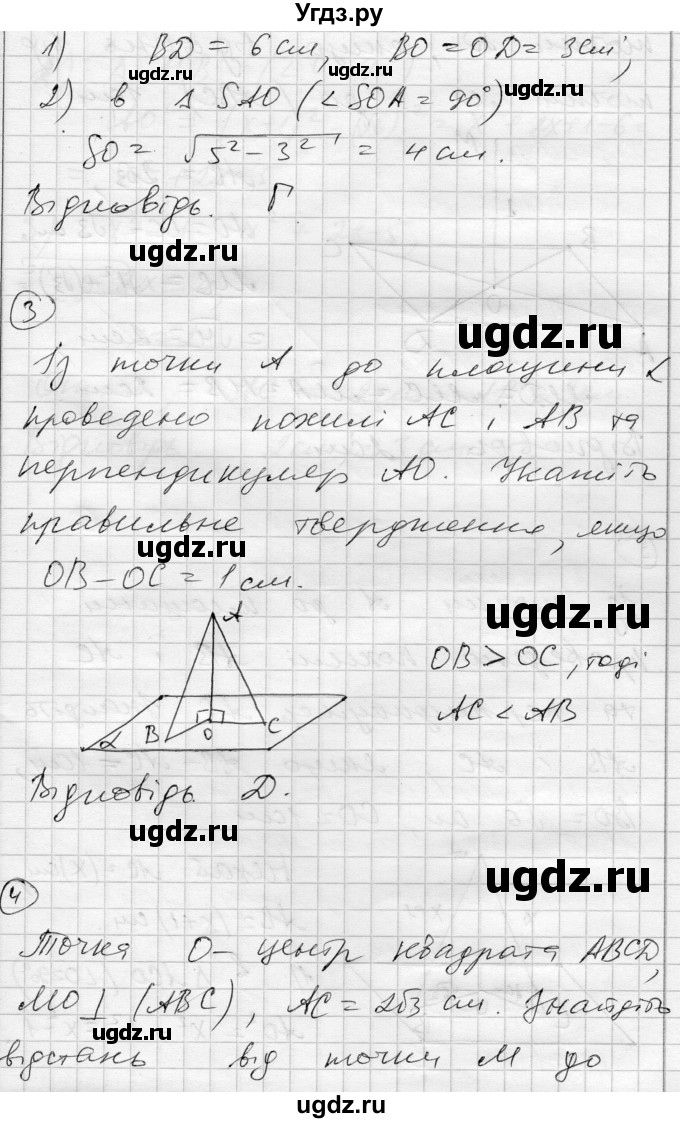 Угдз.ру
1) BD = 6 см, BO = OD = 3 см,
2) в Δ SAO (∠SOA = 90°)
SO = √5² – 3² = 4 см.
Відповідь. Г
3
Із точки А до площини α
проведено похилі АС і АВ та
перпендикуляр АО. Укажіть
правильне твердження, якщо
OB – OC = 1 см.
A
OB > OC, тоді
AC < AB
α B O C
Відповідь Д.
4
Точка О – центр квадрата ABCD,
MO ⊥ (ABC), AC = 2√3 см. Знайдіть
відстань від точки М до
ugdz.ru
ugdz.ru
ugdz.ru
ugdz.ru
ugdz.ru
ugdz.ru
ugdz.ru
ugdz.ru
ugdz.ru
ugdz.ru
ugdz.ru
ugdz.ru